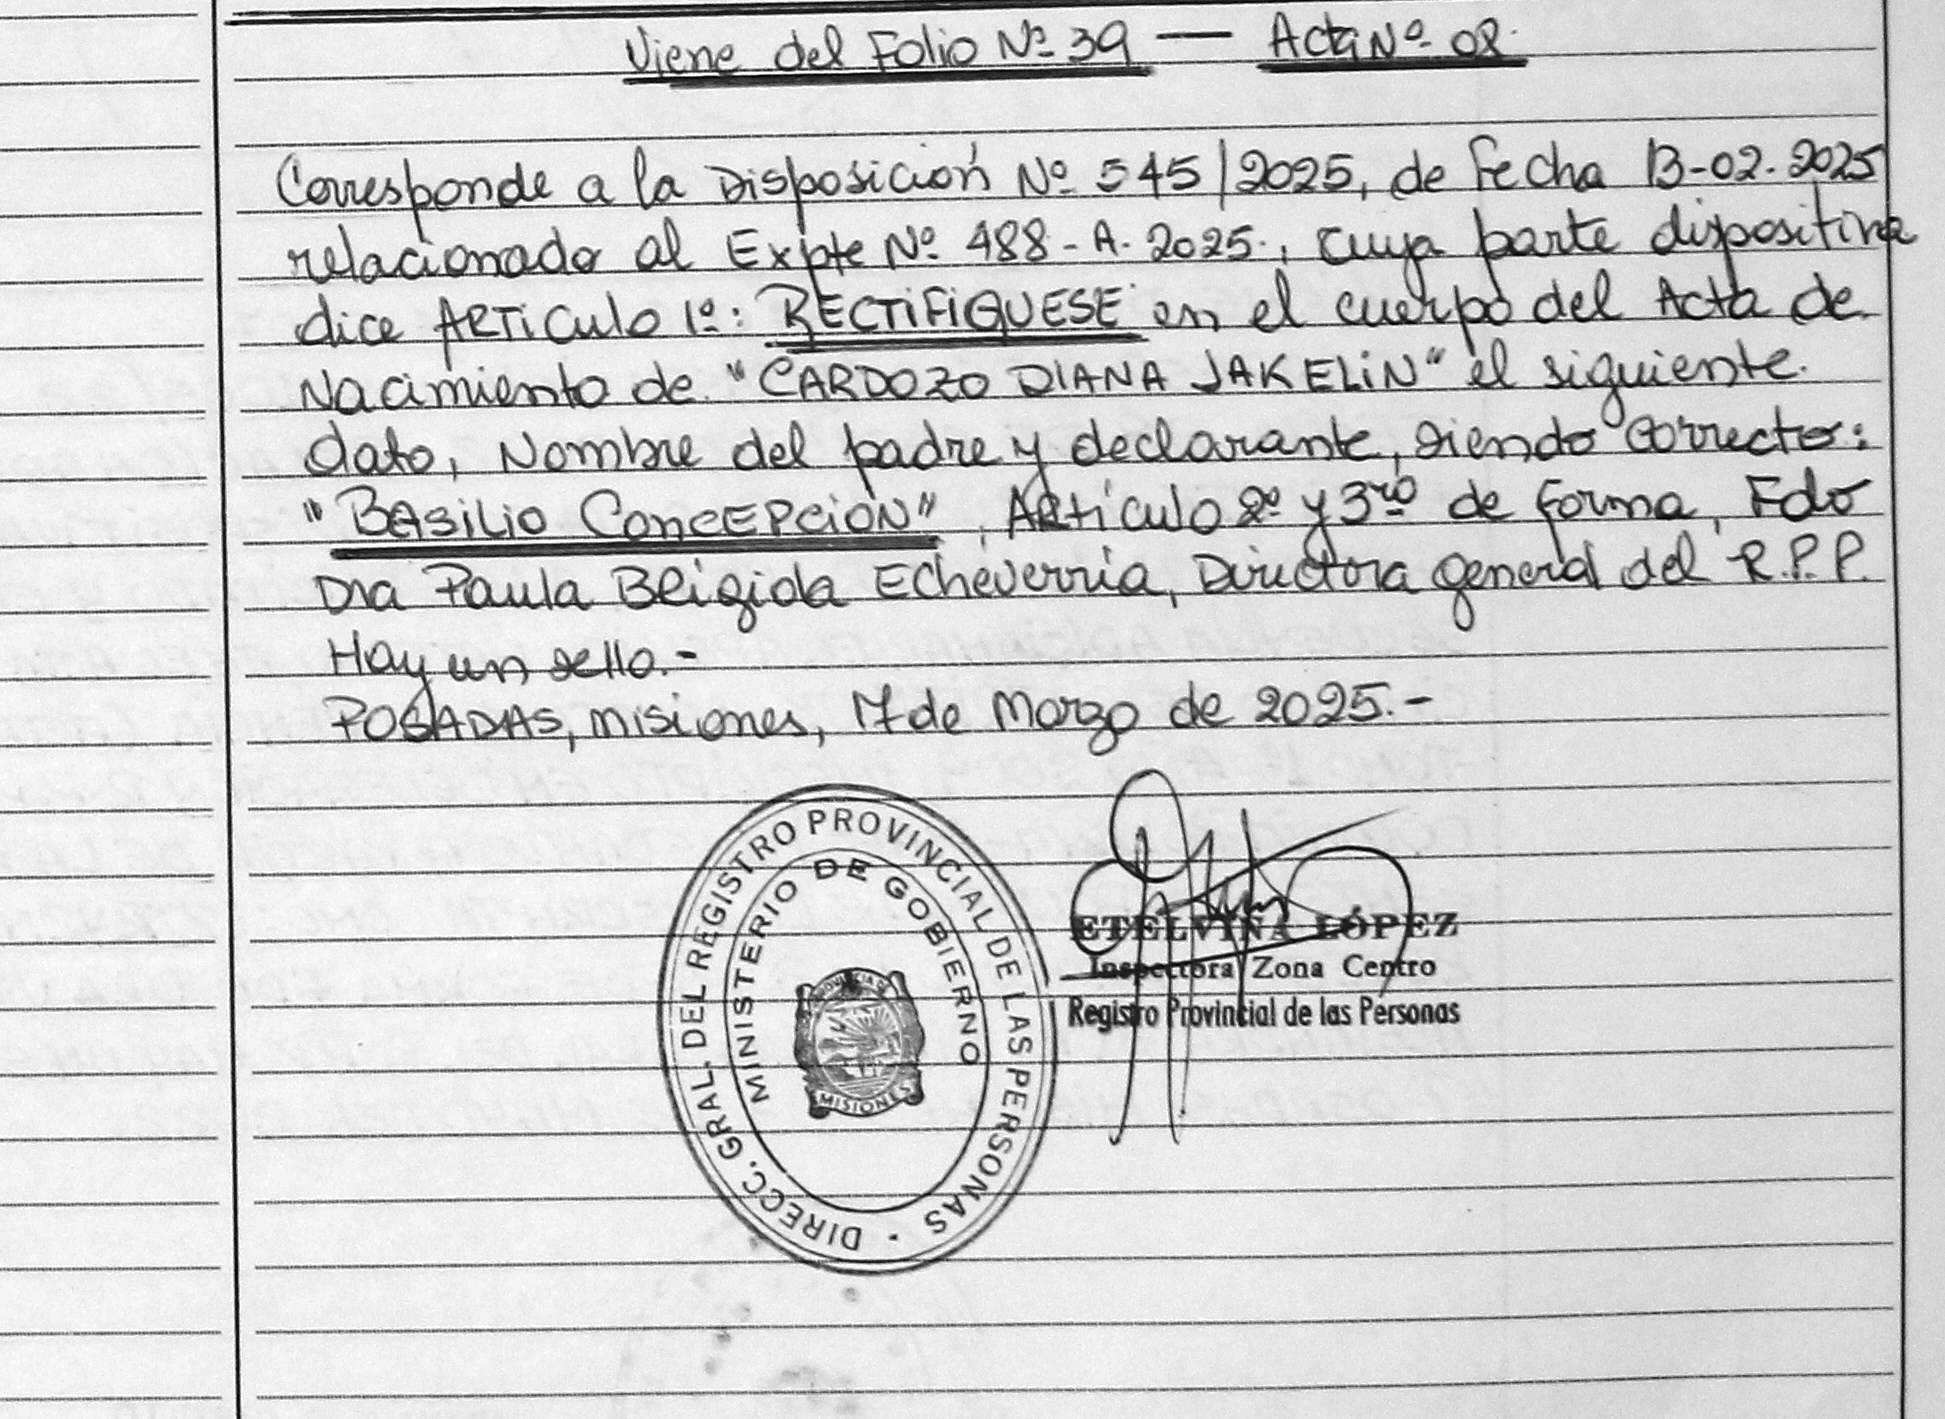 Viene del Folio Nº 39 — Acta Nº 08.
Corresponde a la Disposición Nº 545/2025, de Fecha 13-02-2025
relacionado al Expte Nº 488-A-2025., cuya parte dispositiva
dice ARTiculo 1º: RECTIFIQUESE en el cuerpo del Acta de
Nacimiento de "CARDOZO DIANA JAKELIN" el siguiente
dato, Nombre del padre y declarante, siendo correcto:
"BASILIO CONCEPCION", Artículo 2º y 3ro de forma, Fdo
Dra Paula Brigida Echeverria, Directora general del R.P.P.
Hay un sello.-
POSADAS, misiones, 17 de Marzo de 2025.-
DIRECC. GRAL. DEL REGISTRO PROVINCIAL DE LAS PERSONAS
MINISTERIO DE GOBIERNO
MISIONES
ETELVINA LÓPEZ
Inspectora Zona Centro
Registro Provincial de las Personas